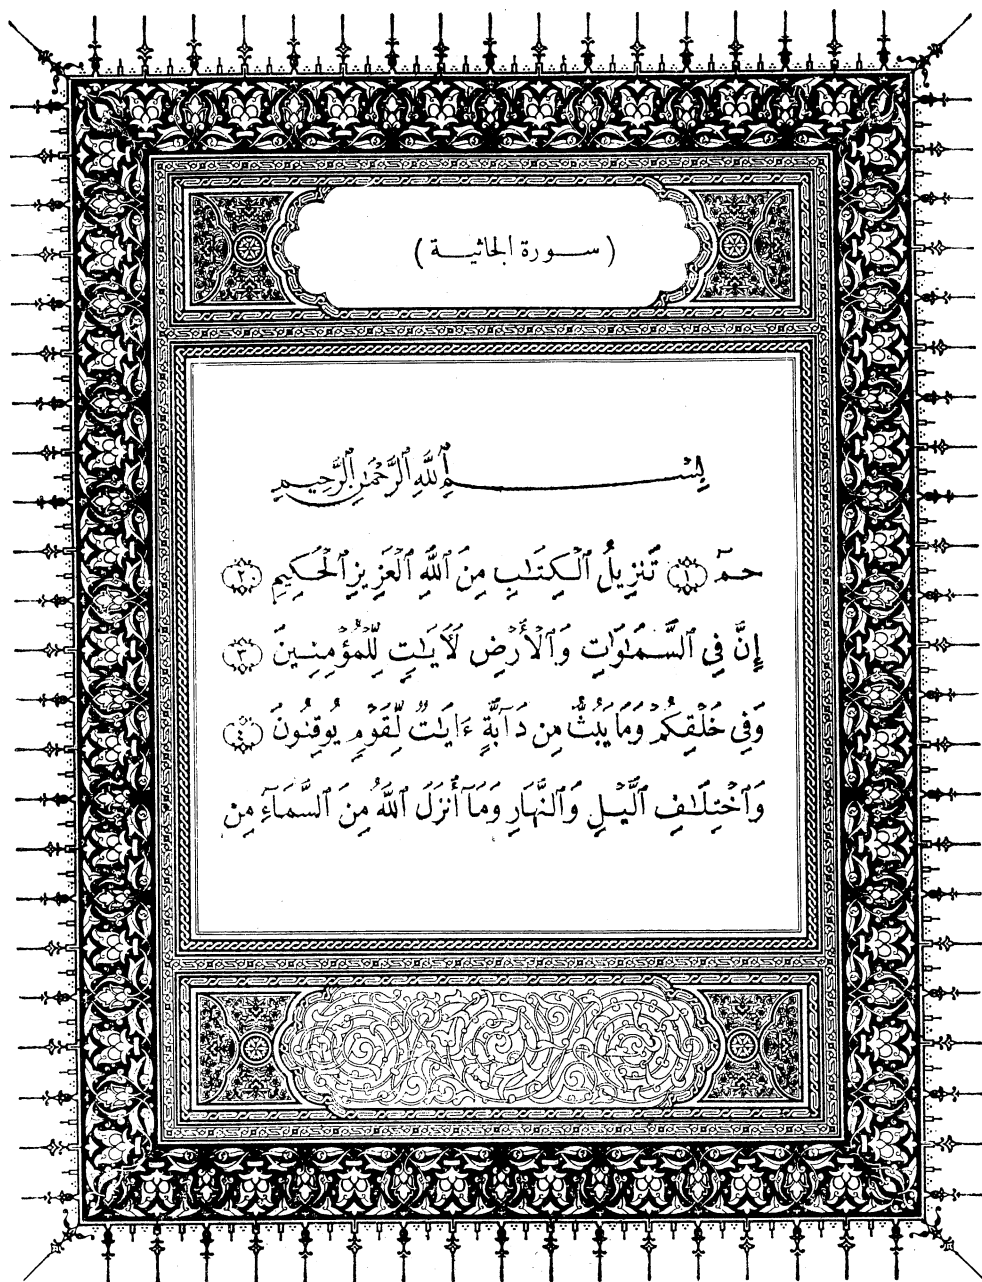 ( سورة الجاثية )
بِسْمِ ٱللَّهِ ٱلرَّحْمَٰنِ ٱلرَّحِيمِ
حمٓ ﴿١﴾ تَنزِيلُ ٱلْكِتَٰبِ مِنَ ٱللَّهِ ٱلْعَزِيزِ ٱلْحَكِيمِ ﴿٢﴾
إِنَّ فِى ٱلسَّمَٰوَٰتِ وَٱلْأَرْضِ لَأٓيَٰتٍ لِّلْمُؤْمِنِينَ ﴿٣﴾
وَفِى خَلْقِكُمْ وَمَا يَبُثُّ مِن دَآبَّةٍ ءَايَٰتٌ لِّقَوْمٍ يُوقِنُونَ ﴿٤﴾
وَٱخْتِلَٰفِ ٱلَّيْلِ وَٱلنَّهَارِ وَمَآ أَنزَلَ ٱللَّهُ مِنَ ٱلسَّمَآءِ مِن